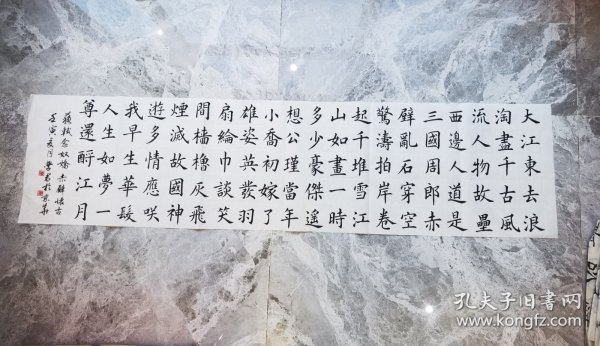 大江東去浪
淘盡千古風
流人物故壘
西邊人道是
三國周郎赤
壁亂石穿空
驚濤拍岸卷
起千堆雪江
山如畫一時
多少豪傑遥
想公瑾當年
小喬初嫁了
雄姿英發羽
扇綸巾談笑
間樯櫓灰飛
煙滅故國神
遊多情應咲
我早生華髮
人生如夢一
尊還酹江月
蘇軾念奴嬌赤壁懷古
壬寅夏月書於京華
孔夫子旧书网
www.kongfz.com